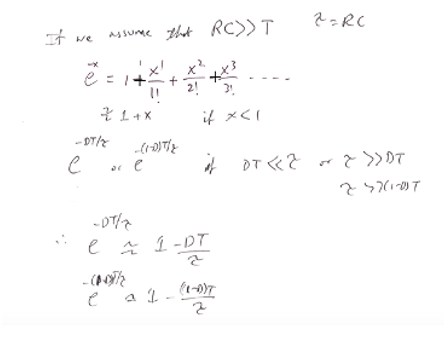 If we assume that RC>>T τ=RC
e^-x = 1 + x^1/1! + x^2/2! + x^3/3! ....
≈ 1+x if x<1
e^-DT/τ or e^-(1-D)T/τ if DT << τ or τ >> DT
τ >> (1-D)T
∴ e^-DT/τ ≈ 1 - DT/τ
e^-(1-D)T/τ ≈ 1 - (1-D)T/τ